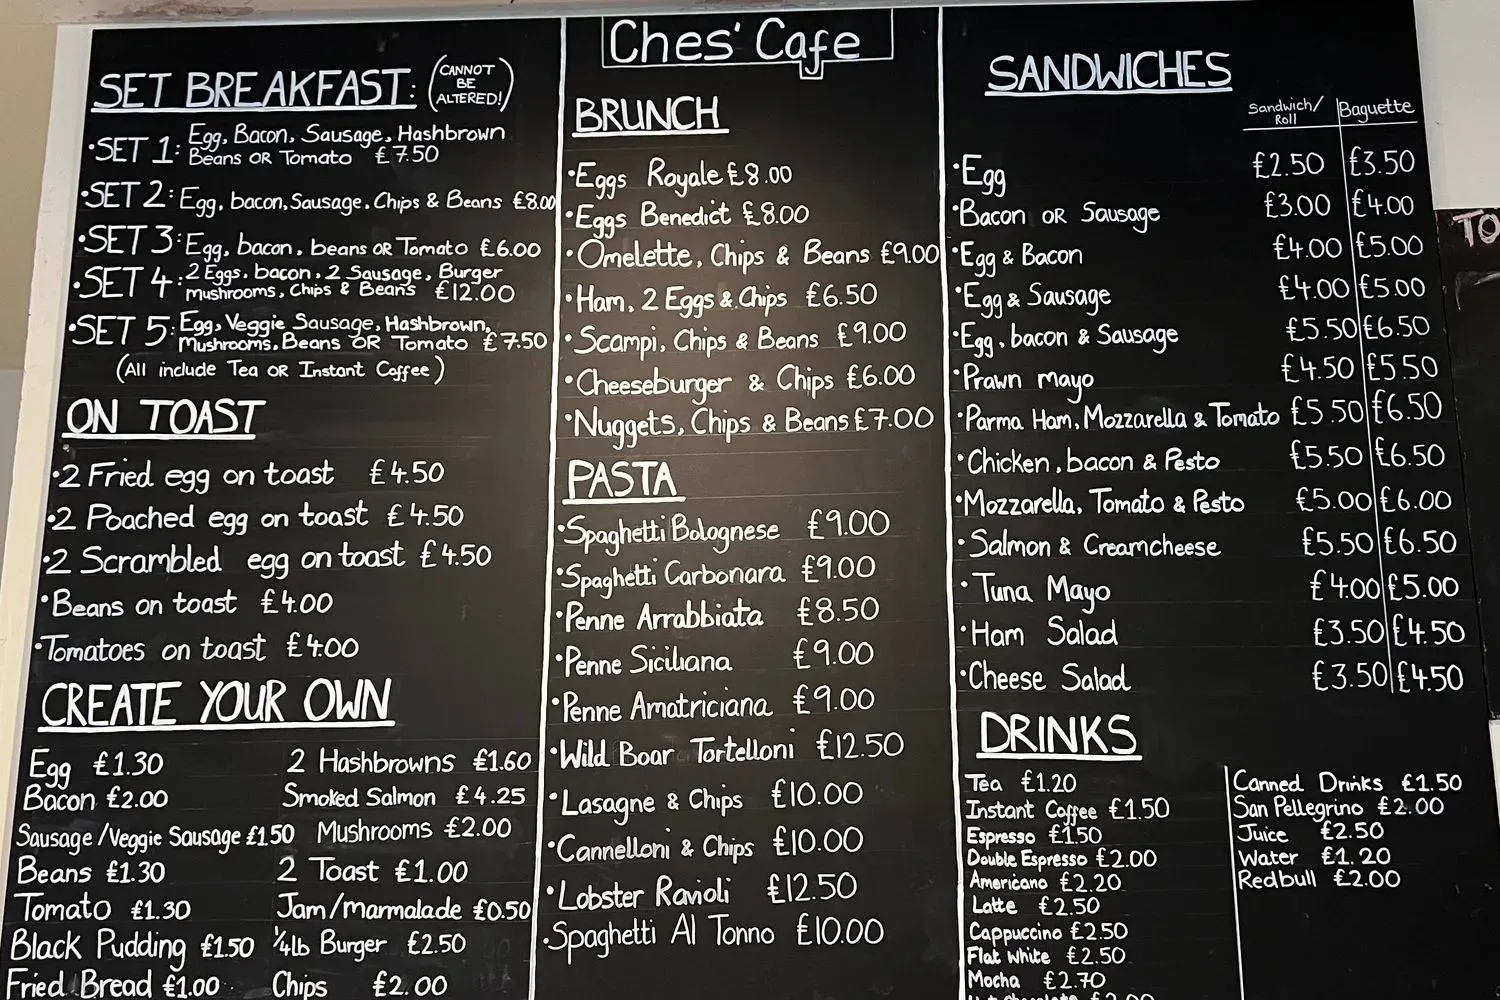 SET BREAKFAST: (CANNOT
BE
ALTERED!)
•SET 1: Egg, Bacon, Sausage, Hashbrown
Beans OR Tomato £7.50
•SET 2: Egg, bacon, Sausage, Chips & Beans £8.00
•SET 3: Egg, bacon, beans OR Tomato £6.00
•SET 4: 2 Eggs, bacon, 2 Sausage, Burger
mushrooms, Chips & Beans £12.00
•SET 5: Egg, Veggie Sausage, Hashbrown,
Mushrooms, Beans OR Tomato £7.50
(All include Tea OR Instant Coffee)
ON TOAST
•2 Fried egg on toast £4.50
•2 Poached egg on toast £4.50
•2 Scrambled egg on toast £4.50
•Beans on toast £4.00
•Tomatoes on toast £4.00
CREATE YOUR OWN
Egg £1.30
Bacon £2.00
Sausage/Veggie Sausage £1.50
Beans £1.30
Tomato £1.30
Black Pudding £1.50
Fried Bread £1.00
2 Hashbrowns £1.60
Smoked Salmon £4.25
Mushrooms £2.00
2 Toast £1.00
Jam/marmalade £0.50
1/4lb Burger £2.50
Chips £2.00
Ches' Cafe
BRUNCH
•Eggs Royale £8.00
•Eggs Benedict £8.00
•Omelette, Chips & Beans £9.00
•Ham, 2 Eggs & Chips £6.50
•Scampi, Chips & Beans £9.00
•Cheeseburger & Chips £6.00
•Nuggets, Chips & Beans £7.00
PASTA
•Spaghetti Bolognese £9.00
•Spaghetti Carbonara £9.00
•Penne Arrabbiata £8.50
•Penne Siciliana £9.00
•Penne Amatriciana £9.00
•Wild Boar Tortelloni £12.50
•Lasagne & Chips £10.00
•Cannelloni & Chips £10.00
•Lobster Ravioli £12.50
•Spaghetti Al Tonno £10.00
SANDWICHES
Sandwich/
Roll Baguette
•Egg £2.50 £3.50
•Bacon OR Sausage £3.00 £4.00
•Egg & Bacon £4.00 £5.00
•Egg & Sausage £4.00 £5.00
•Egg, bacon & Sausage £5.50 £6.50
•Prawn mayo £4.50 £5.50
•Parma Ham, Mozzarella & Tomato £5.50 £6.50
•Chicken, bacon & Pesto £5.50 £6.50
•Mozzarella, Tomato & Pesto £5.00 £6.00
•Salmon & Creamcheese £5.50 £6.50
•Tuna Mayo £4.00 £5.00
•Ham Salad £3.50 £4.50
•Cheese Salad £3.50 £4.50
DRINKS
Tea £1.20
Instant Coffee £1.50
Espresso £1.50
Double Espresso £2.00
Americano £2.20
Latte £2.50
Cappuccino £2.50
Flat White £2.50
Mocha £2.70
Canned Drinks £1.50
San Pellegrino £2.00
Juice £2.50
Water £1.20
Redbull £2.00
TO